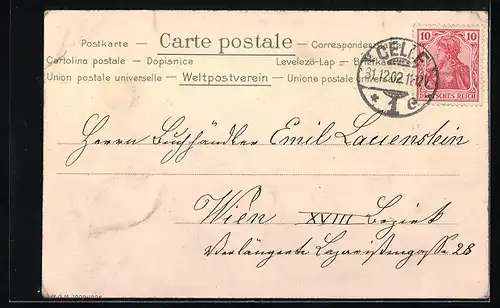 Postkarte — Carte postale — Correspondenz
Cartolina postale — Dopisnice Levelező-Lap — Briefkaart
Union postale universelle — Weltpostverein — Unione postale universale
10 10
DEUTSCHES REICH
CELLE
31.12.02.11-12V.
* 1 e
Herrn Buchhändler Emil Lauenstein
Wien XVIII Bezirk
Verlängerte Lazaristengasse 28